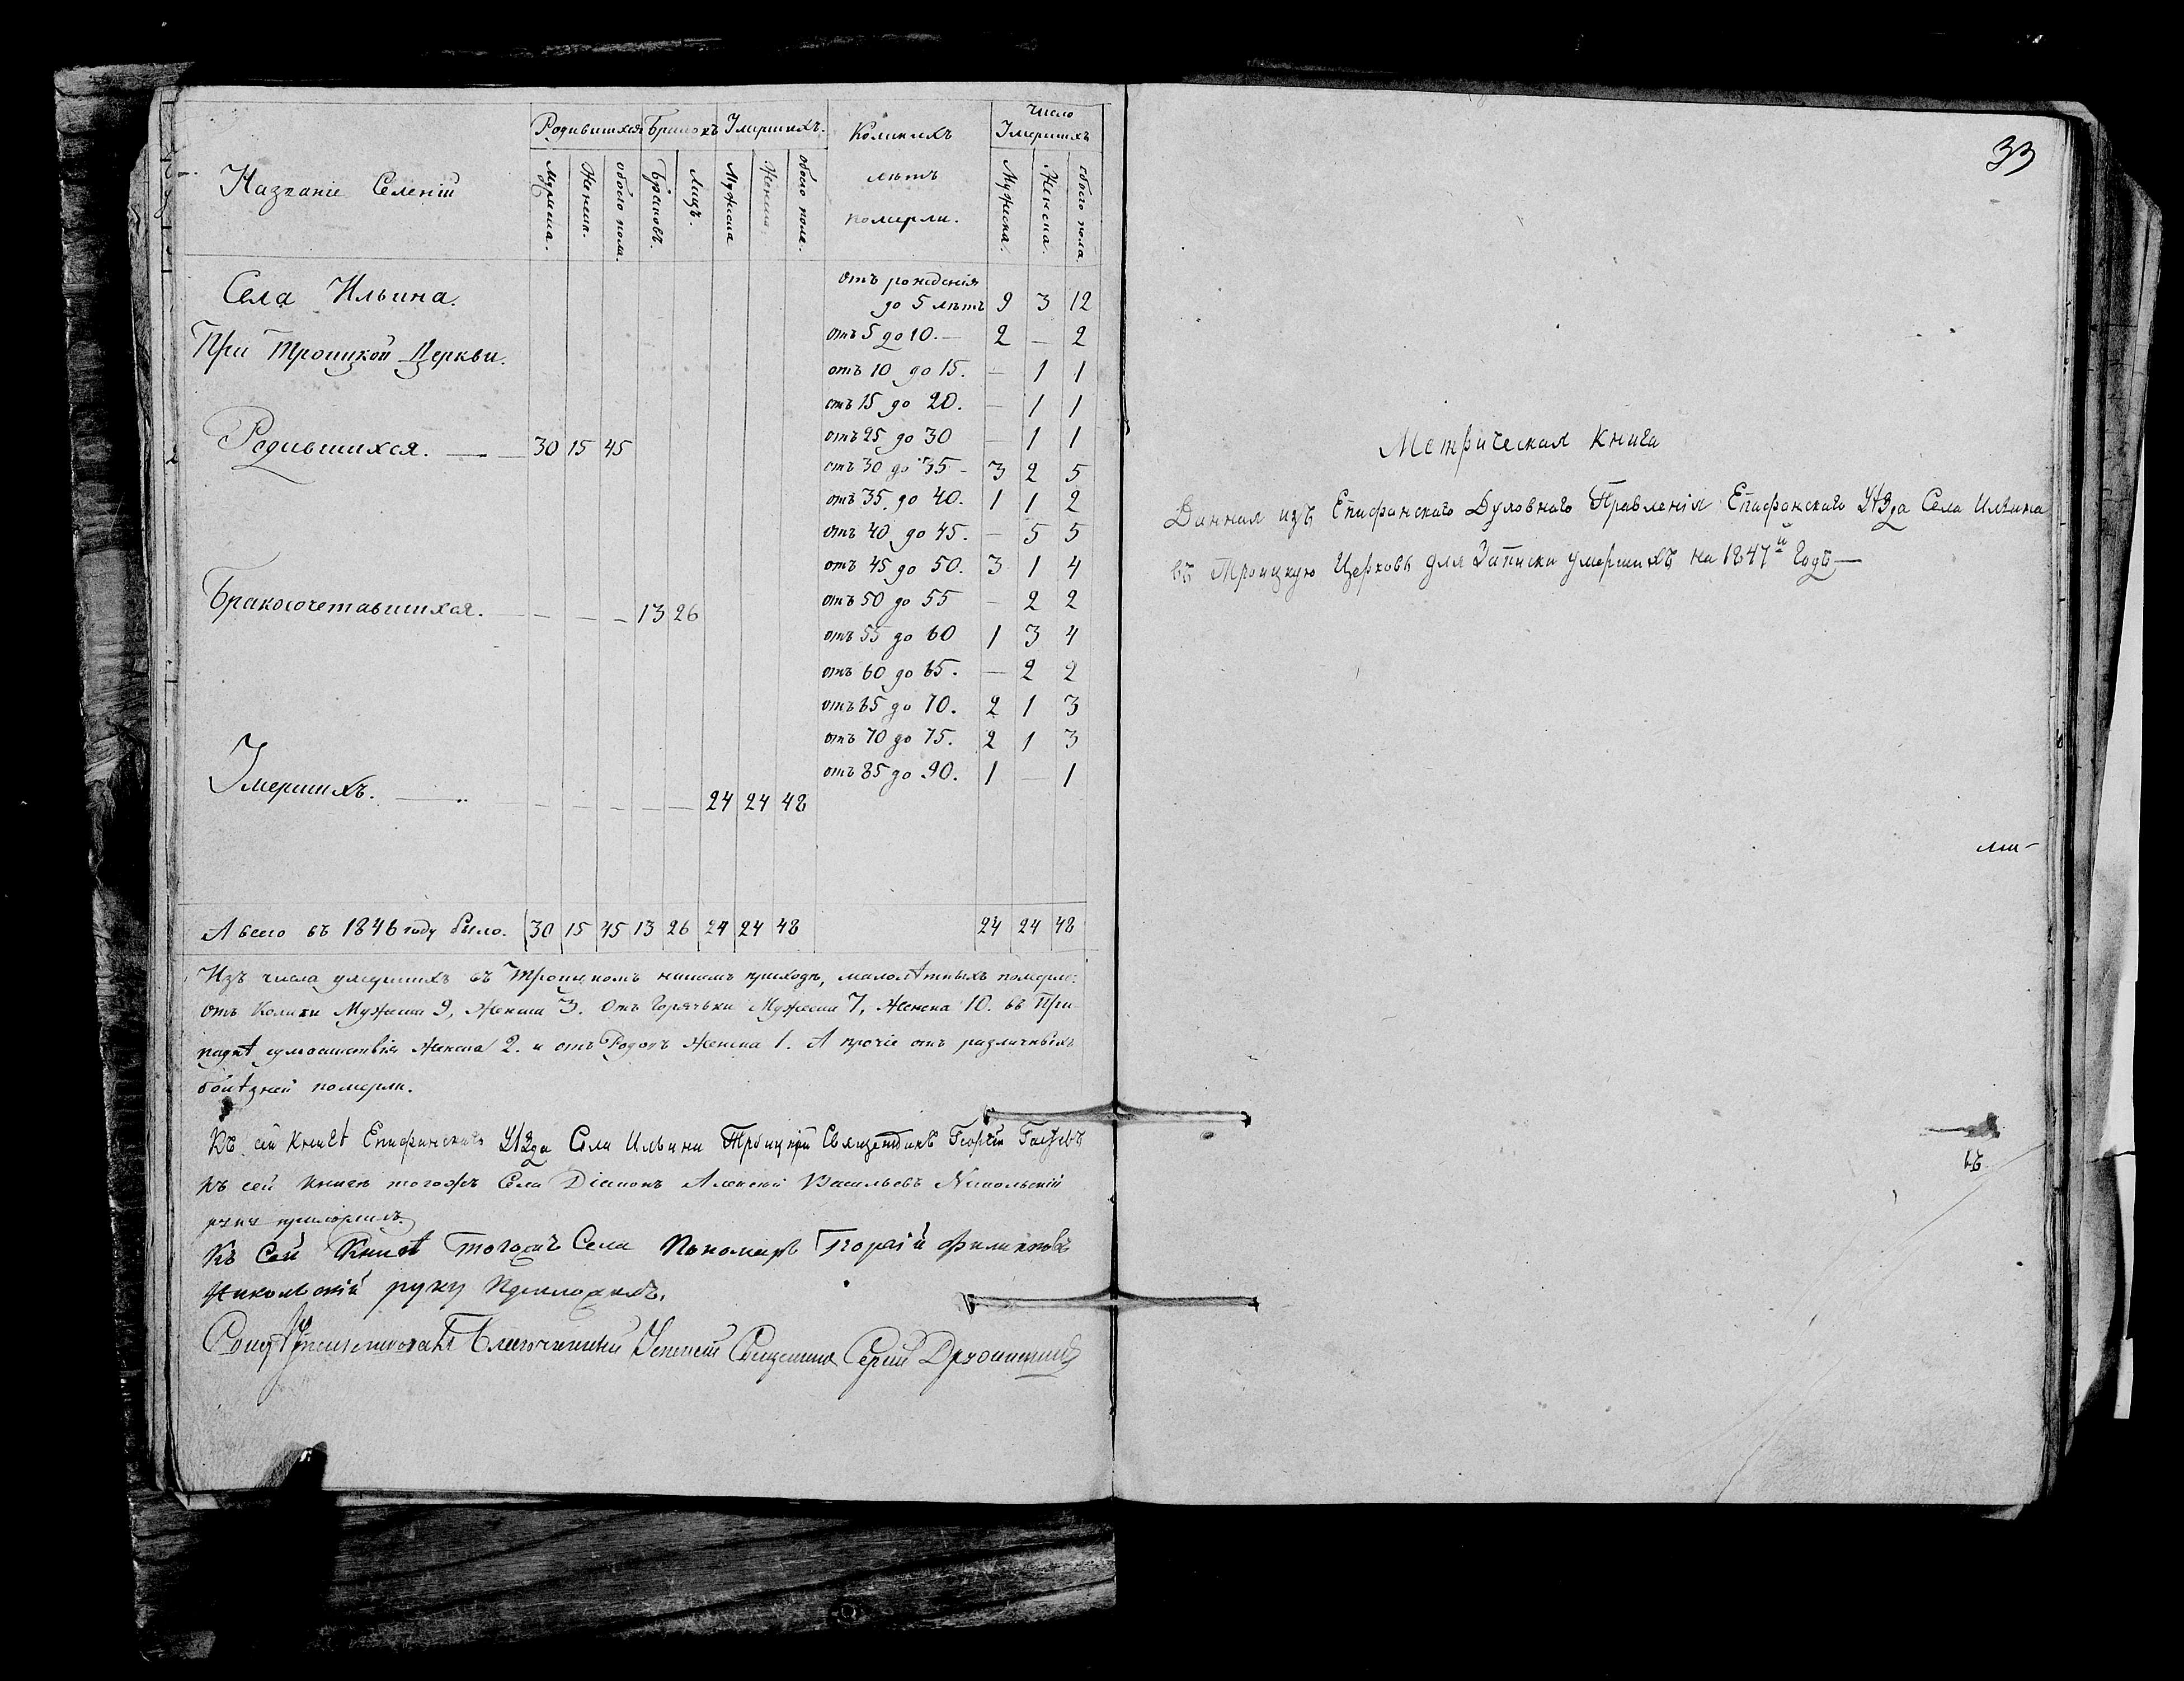 Названіе Селеній
Родившихся Браковъ Умершихъ.
Мужеска. Женска. обоего пола. Браковъ. Лицъ. Мужеска Женска. обоего пола.
Коликихъ
лѣтъ
померли.
Число
Умершихъ
Мужеска. Женска. обоего пола
Села Ильина.
При Троицкой Церкви.
Родившихся. — 30 15 45
Бракосочетавшихся. — — — — 13 26
Умершихъ. — — — — — — 24 24 48
отъ рожденія
до 5 лѣтъ 9 3 12
отъ 5 до 10. — 2 — 2
отъ 10 до 15. — 1 1
отъ 15 до 20. — 1 1
отъ 25 до 30 — 1 1
отъ 30 до 35 - 3 2 5
отъ 35 до 40. 1 1 2
отъ 40 до 45. — 5 5
отъ 45 до 50. 3 1 4
отъ 50 до 55 — 2 2
отъ 55 до 60 1 3 4
отъ 60 до 65. — 2 2
отъ 65 до 70. 2 1 3
отъ 70 до 75. 2 1 3
отъ 85 до 90. 1 — 1
А всего въ 1846 году было. 30 15 45 13 26 24 24 48 24 24 48
Изъ числа умершихъ въ Троицкомъ нашемъ приходѣ, малолѣтныхъ померло:
отъ Колики Мужеска 9, Женска 3. Отъ Горячьки Мужеска 7, Женска 10. въ При-
падкѣ сумасшествія Женска 2. и отъ Родовъ Женска 1. А прочіе отъ различныхъ
болѣзней померли.
Къ сей Книгѣ Епифанскаго Уѣзда Села Ильина Троицкій Священникъ Георгій
Къ сей Книгѣ тогожъ Села Діаконъ Алексѣй Васильевъ Никольскій
руку приложилъ.
Къ Сей Книгѣ тогожъ Села Пономарь Георгій Филиповъ
Никольскій руку Приложилъ.
Благочинный Успенскій Священникъ Сергій
33
Метрическая Книга
Данная изъ Епифанскаго Духовнаго Правленія Епифанскаго Уѣзда Села Ильина
въ Троицкую Церковь для Записки умершихъ на 1847й Годъ —
ли-
въ